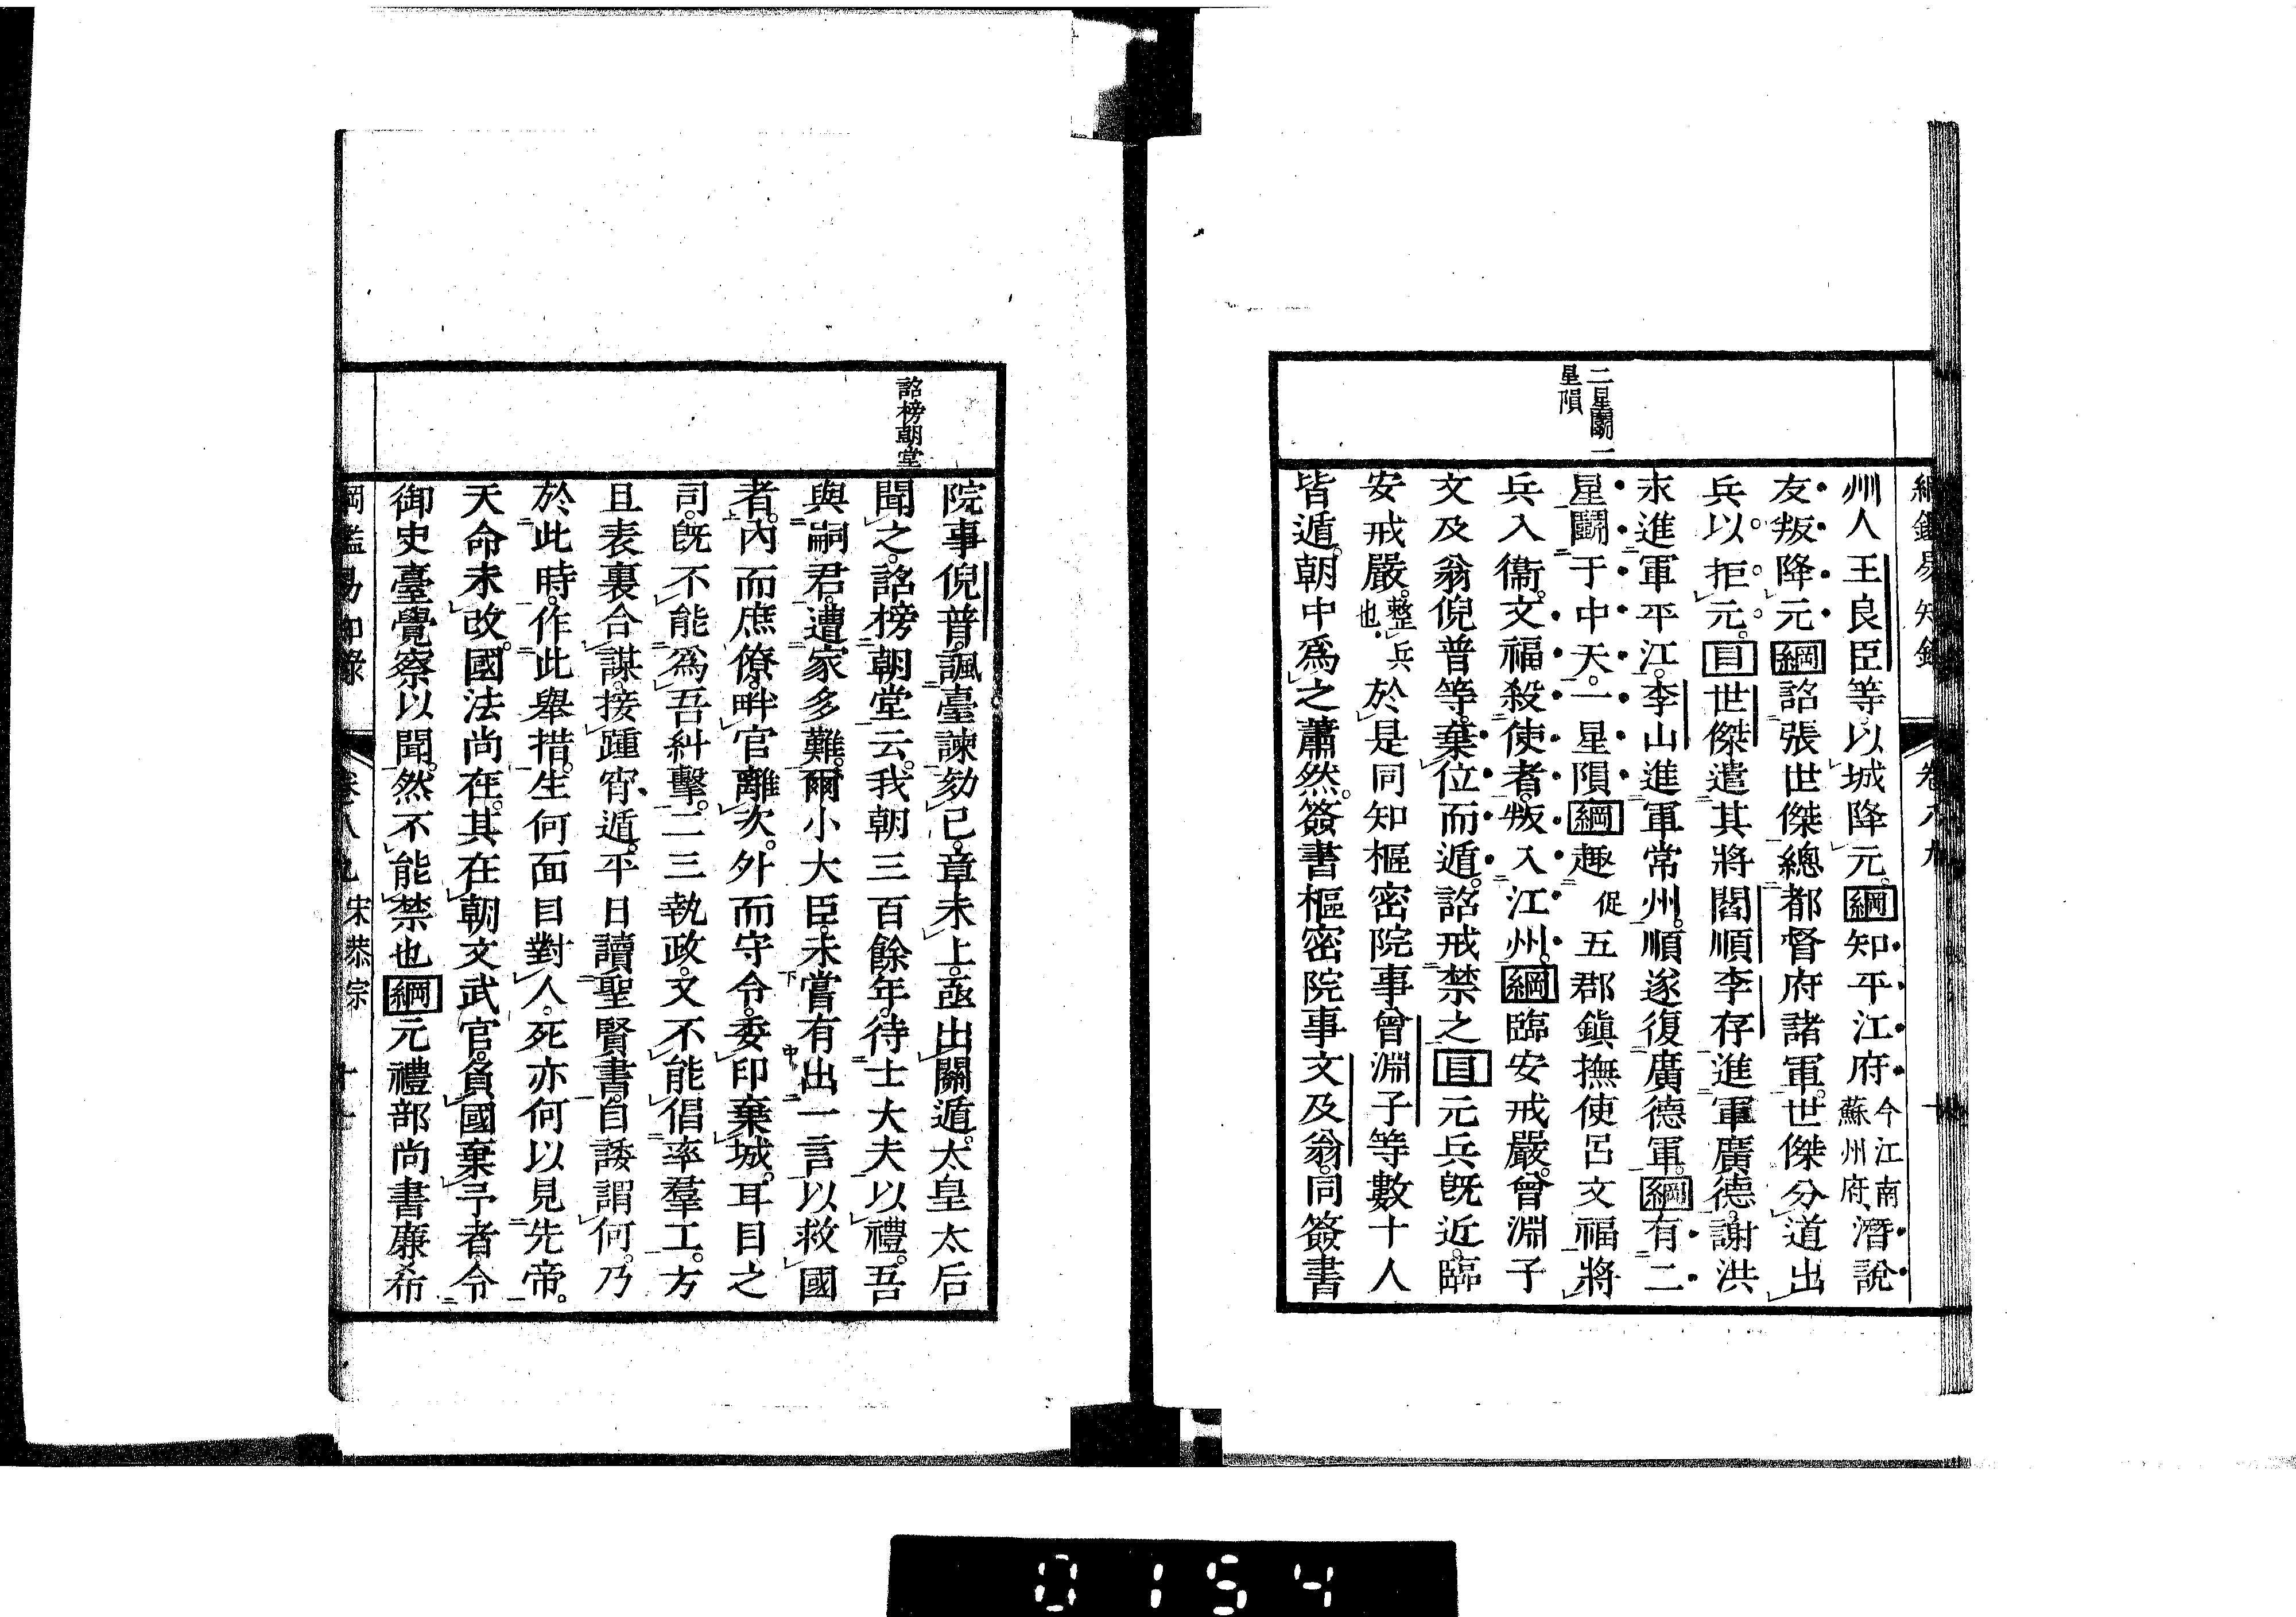 綱鑑易知錄 卷八九 十
二星鬭一
星隕
州人王良臣等。以城降元。綱知平江府今江南蘇州府、潛說
友叛降元綱詔張世傑總都督府諸軍。世傑分道出
兵以拒元。目世傑遣其將閻順李存進軍廣德。謝洪
永進軍平江。李山進軍常州。順遂復廣德軍。綱有二
星鬭于中天。一星隕綱趣促五郡鎮撫使呂文福將
兵入衞。文福殺使者。叛入江州。綱臨安戒嚴。曾淵子
文及翁倪普等。棄位而遁。詔戒禁之目元兵旣近。臨
安戒嚴。整兵也。於是同知樞密院事曾淵子等數十人
皆遁。朝中爲之蕭然。簽書樞密院事文及翁。同簽書
詔榜朝堂
院事倪普。諷臺諫劾己。章未上。亟出關遁。太皇太后
聞之。詔榜朝堂云。我朝三百餘年。待士大夫以禮。吾
與嗣君。遭家多難。爾小大臣。未嘗有出一言以救國
者。內而庶僚。畔官離次。外而守令。委印棄城。耳目之
司。旣不能爲吾糾擊。二三執政。又不能倡率羣工。方
且表裏合謀。接踵宵遁。平日讀聖賢書。自諉謂何。乃
於此時。作此舉措。生何面目對人。死亦何以見先帝。
天命未改。國法尚在。其在朝文武官。負國棄予者。令
御史臺覺察以聞。然不能禁也綱元禮部尚書廉希
綱鑑易知錄 卷八九 宋恭宗 十一
0154